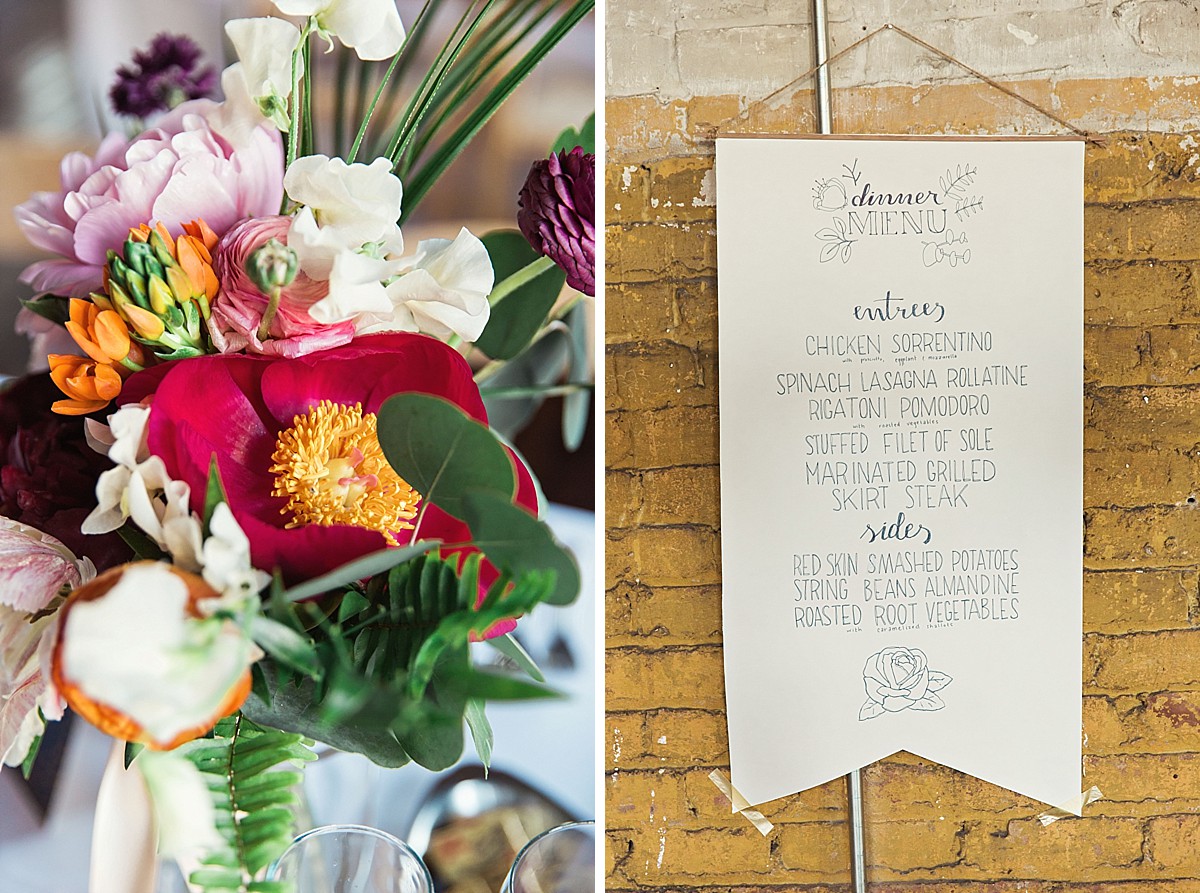 dinner
MENU
entrees
CHICKEN SORRENTINO
with prosciutto, eggplant & mozzarella
SPINACH LASAGNA ROLLATINE
RIGATONI POMODORO
with roasted vegetables
STUFFED FILET OF SOLE
MARINATED GRILLED
SKIRT STEAK
sides
RED SKIN SMASHED POTATOES
STRING BEANS ALMANDINE
ROASTED ROOT VEGETABLES
with caramelized shallots